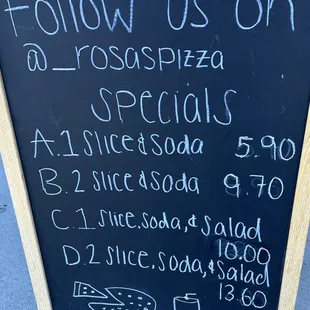 Follow us on
@_rosaspizza
specials
A. 1 slice & soda 5.90
B. 2 slice & soda 9.70
C. 1 slice, soda, & salad
10.00
D. 2 slice, soda, & salad
13.60